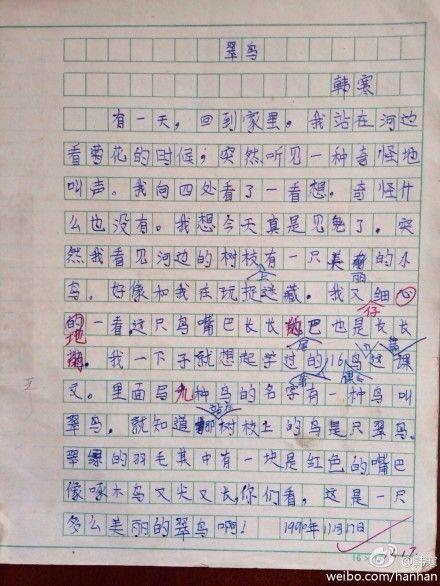 翠鸟
韩寒
有一天，回到家里。我站在河边
看菊花的时候；突然听见一种奇怪地
叫声。我向四处看了一看想。奇怪什
么也没有。我想今天真是见鬼了。突
然我看见河边的树枝上有一只美丽的小
鸟。好像和我在玩捉迷藏。我又仔细
地一看这只鸟嘴巴长长尾巴也是长长
我一下子就想起学过的第116课鸟这课
文。里面写九种鸟的名字有一种鸟叫
翠鸟，就知道站在那树枝上的鸟是只翠鸟。
翠绿的羽毛其中有一块是红色的嘴巴
像啄木鸟又尖又长，你们看，这是一只
多么美丽的翠鸟啊！ 1990年11月17日
16×
韩寒
weibo.com/hanhan